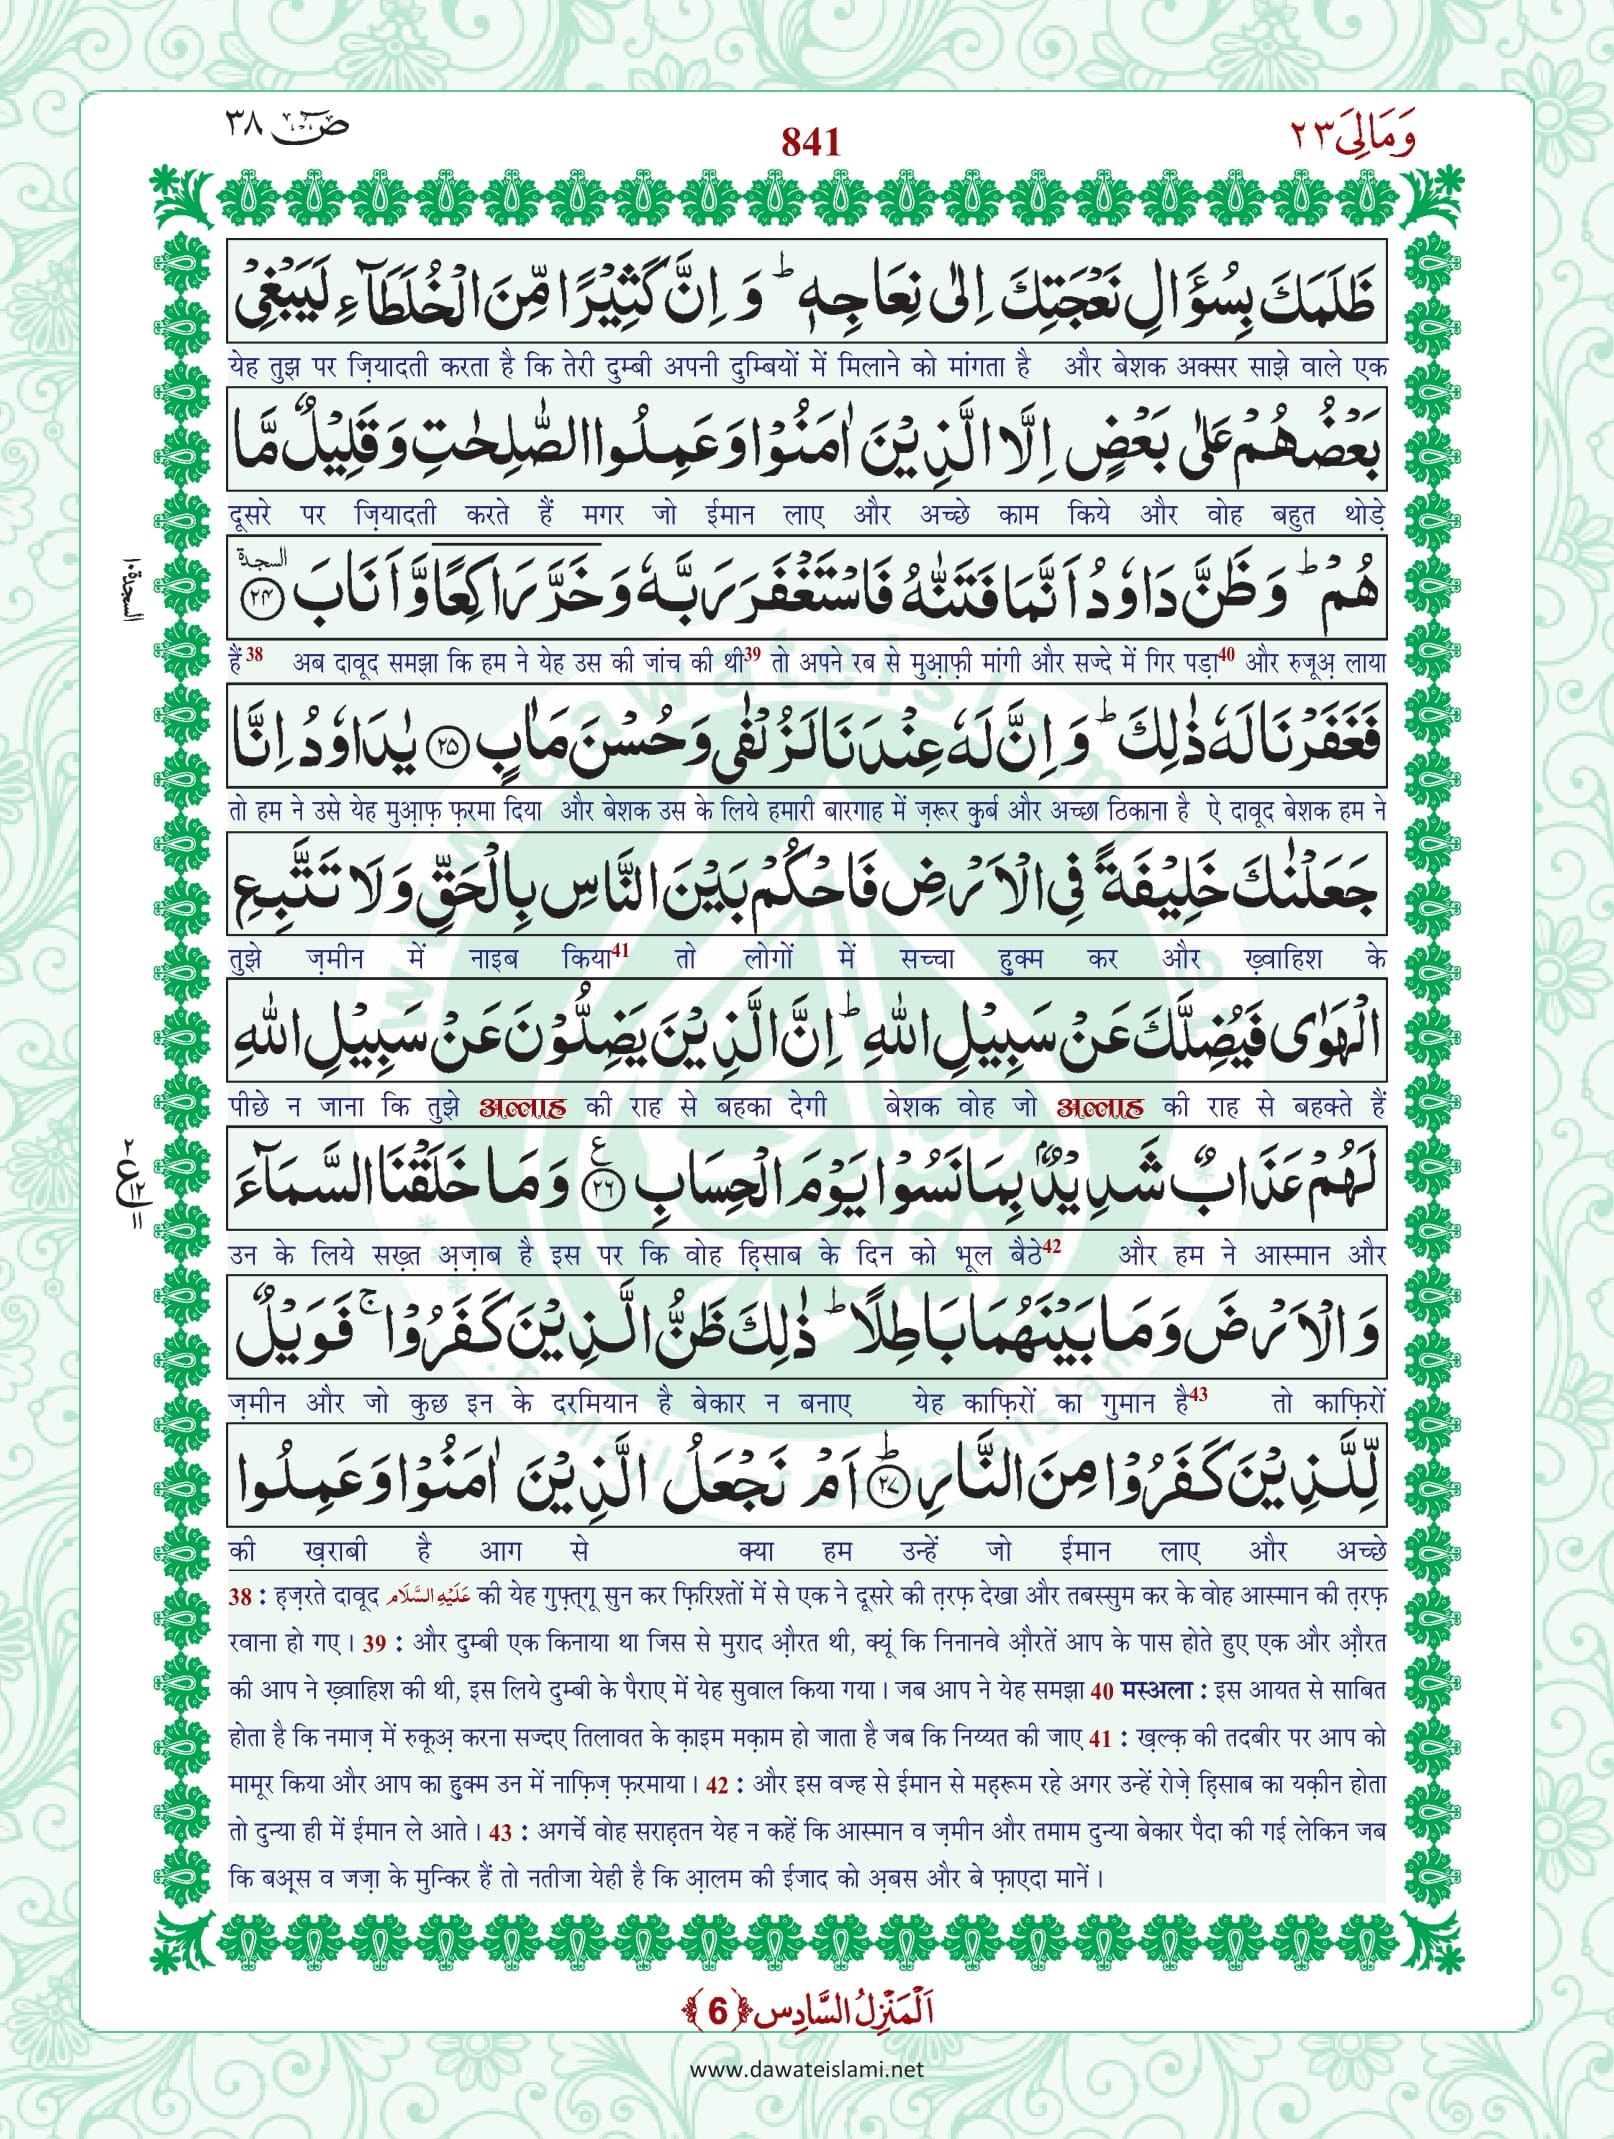 وَمَالِیَ ۲۳
841
صٓ ۳۸
ظَلَمَكَ بِسُؤَالِ نَعْجَتِكَ اِلٰى نِعَاجِهٖ ؕ وَ اِنَّ كَثِیْرًا مِّنَ الْخُلَطَآءِ لَیَبْغِیْ
येह तुझ पर ज़ियादती करता है कि तेरी दुम्बी अपनी दुम्बियों में मिलाने को मांगता है और बेशक अक्सर साझे वाले एक
بَعْضُهُمْ عَلٰى بَعْضٍ اِلَّا الَّذِیْنَ اٰمَنُوْا وَ عَمِلُوا الصّٰلِحٰتِ وَ قَلِیْلٌ مَّا
दूसरे पर ज़ियादती करते हैं मगर जो ईमान लाए और अच्छे काम किये और वोह बहुत थोड़े
هُمْ ؕ وَ ظَنَّ دَاوٗدُ اَنَّمَا فَتَنّٰهُ فَاسْتَغْفَرَ رَبَّهٗ وَ خَرَّ رَاكِعًا وَّ اَنَابَ ۲۴ السجدة
السجدة ۱۰
हैं38 अब दावूद समझा कि हम ने येह उस की जांच की थी39 तो अपने रब से मुआ़फ़ी मांगी और सज्दे में गिर पड़ा40 और रुजूअ़ लाया
فَغَفَرْنَا لَهٗ ذٰلِكَ ؕ وَ اِنَّ لَهٗ عِنْدَنَا لَزُلْفٰى وَ حُسْنَ مَاٰبٍ ۲۵ یٰدَاوٗدُ اِنَّا
तो हम ने उसे येह मुआ़फ़ फ़रमा दिया और बेशक उस के लिये हमारी बारगाह में ज़रूर क़ुर्ब और अच्छा ठिकाना है ऐ दावूद बेशक हम ने
جَعَلْنٰكَ خَلِیْفَةً فِی الْاَرْضِ فَاحْكُمْ بَیْنَ النَّاسِ بِالْحَقِّ وَ لَا تَتَّبِعِ
तुझे ज़मीन में नाइब किया41 तो लोगों में सच्चा हुक्म कर और ख़्वाहिश के
الْهَوٰى فَیُضِلَّكَ عَنْ سَبِیْلِ اللّٰهِ ؕ اِنَّ الَّذِیْنَ یَضِلُّوْنَ عَنْ سَبِیْلِ اللّٰهِ
पीछे न जाना कि तुझे अल्लाह की राह से बहका देगी बेशक वोह जो अल्लाह की राह से बहक्ते हैं
لَهُمْ عَذَابٌ شَدِیْدٌۢ بِمَا نَسُوْا یَوْمَ الْحِسَابِ ۲۶ ع وَ مَا خَلَقْنَا السَّمَآءَ
۲ ع ۱۲ ۱۱
उन के लिये सख़्त अ़ज़ाब है इस पर कि वोह हि़साब के दिन को भूल बैठे42 और हम ने आस्मान और
وَ الْاَرْضَ وَ مَا بَیْنَهُمَا بَاطِلًا ؕ ذٰلِكَ ظَنُّ الَّذِیْنَ كَفَرُوْا ۚ فَوَیْلٌ
ज़मीन और जो कुछ इन के दरमियान है बेकार न बनाए येह काफ़िरों का गुमान है43 तो काफ़िरों
لِّلَّذِیْنَ كَفَرُوْا مِنَ النَّارِ ؕ ۲۷ اَمْ نَجْعَلُ الَّذِیْنَ اٰمَنُوْا وَ عَمِلُوا
की ख़राबी है आग से क्या हम उन्हें जो ईमान लाए और अच्छे
38 : ह़ज़रते दावूद عَلَیْهِ السَّلَام की येह गुफ़्त्गू सुन कर फ़िरिश्तों में से एक ने दूसरे की त़रफ़ देखा और तबस्सुम कर के वोह आस्मान की त़रफ़
रवाना हो गए। 39 : और दुम्बी एक किनाया था जिस से मुराद औ़रत थी, क्यूं कि निनानवे औ़रतें आप के पास होते हुए एक और औ़रत
की आप ने ख़्वाहिश की थी, इस लिये दुम्बी के पैराए में येह सुवाल किया गया। जब आप ने येह समझा 40 मस्अला : इस आयत से साबित
होता है कि नमाज़ में रुकूअ़ करना सज्दए तिलावत के क़ाइम मक़ाम हो जाता है जब कि निय्यत की जाए 41 : ख़ल्क़ की तदबीर पर आप को
मामूर किया और आप का हुक्म उन में नाफ़िज़ फ़रमाया। 42 : और इस वज्ह से ईमान से मह़रूम रहे अगर उन्हें रोज़े हि़साब का यक़ीन होता
तो दुन्या ही में ईमान ले आते। 43 : अगर्चे वोह सराह़तन येह न कहें कि आस्मान व ज़मीन और तमाम दुन्या बेकार पैदा की गई लेकिन जब
कि बअ़्स व जज़ा के मुन्किर हैं तो नतीजा येही है कि आ़लम की ईजाद को अ़बस और बे फ़ाएदा मानें।
اَلْمَنْزِلُ السَّادِس ﴿6﴾
www.dawateislami.net